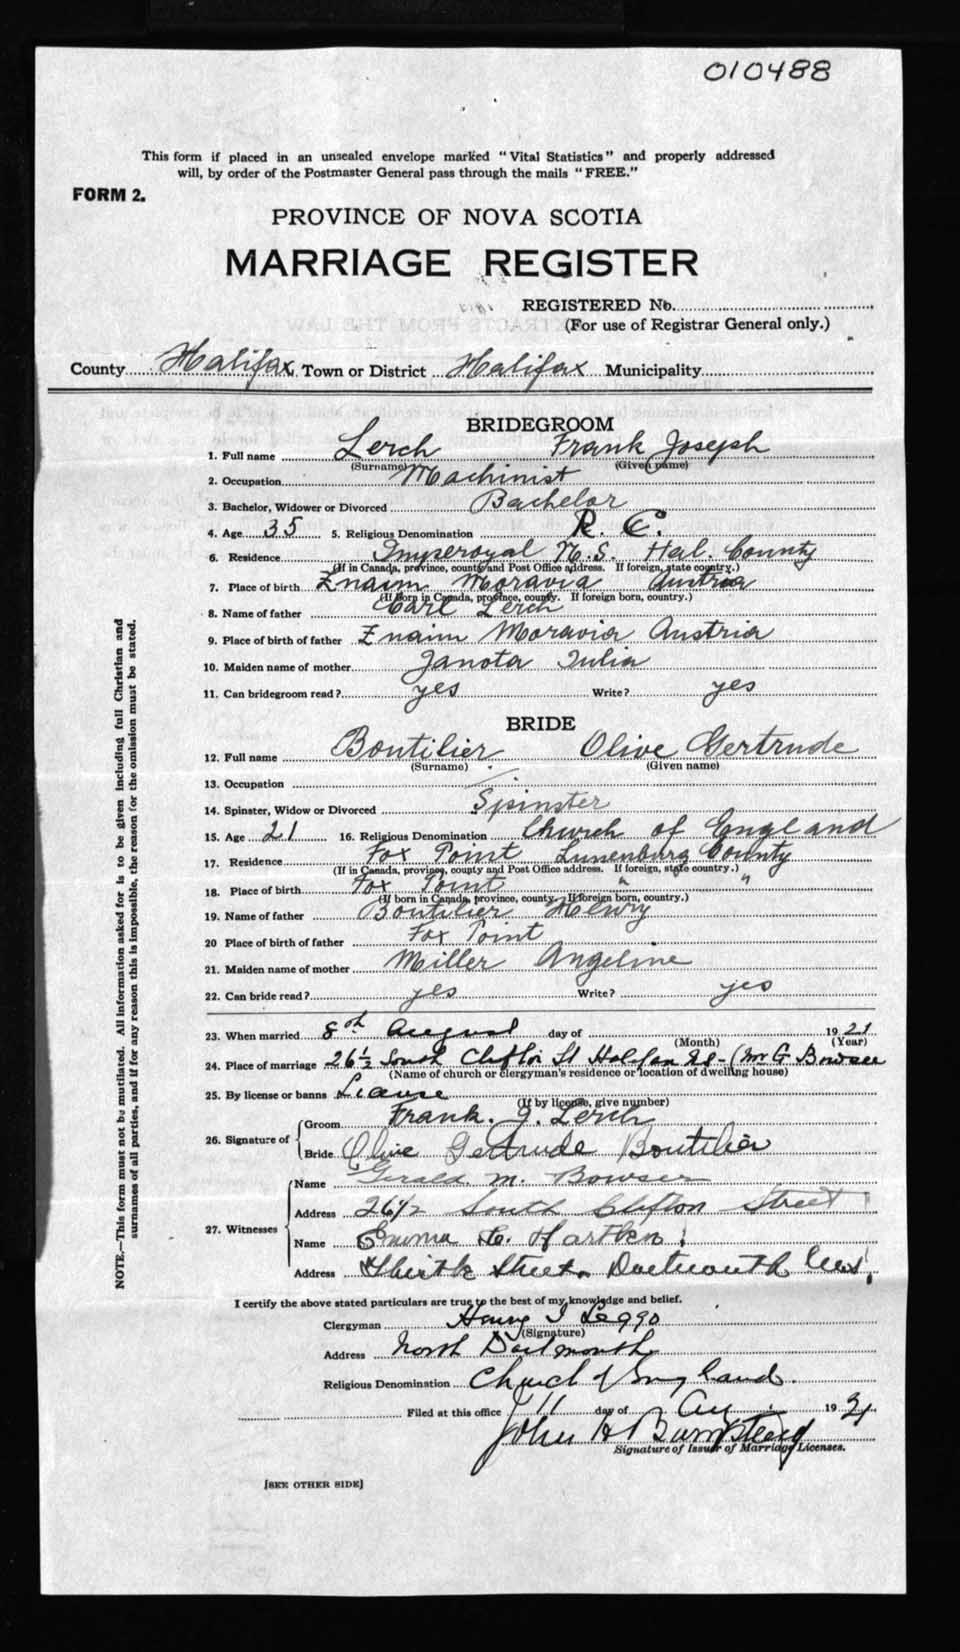 010488
This form if placed in an unsealed envelope marked "Vital Statistics" and properly addressed
will, by order of the Postmaster General pass through the mails "FREE."
FORM 2.
PROVINCE OF NOVA SCOTIA
MARRIAGE REGISTER
REGISTERED No.
(For use of Registrar General only.)
County Halifax Town or District Halifax Municipality
BRIDEGROOM
1. Full name Lerch Frank Joseph
(Surname) (Given name)
2. Occupation Machinist
3. Bachelor, Widower or Divorced Bachelor
4. Age 35 5. Religious Denomination R. C.
6. Residence Imperoyal N.S. Hal. County
(If in Canada, province, county and Post Office address. If foreign, state country.)
7. Place of birth Znaim Moravia Austria
(If born in Canada, province, county. If foreign born, country.)
8. Name of father Carl Lerch
9. Place of birth of father Znaim Moravia Austria
10. Maiden name of mother Janota Julia
11. Can bridegroom read? yes Write? yes
BRIDE
12. Full name Boutilier Olive Gertrude
(Surname) (Given name)
13. Occupation
14. Spinster, Widow or Divorced Spinster
15. Age 21 16. Religious Denomination Church of England
17. Residence Fox Point Lunenburg County
(If in Canada, province, county and Post Office address. If foreign, state country.)
18. Place of birth Fox Point " "
(If born in Canada, province, county. If foreign born, country.)
19. Name of father Boutilier Henry
20 Place of birth of father Fox Point
21. Maiden name of mother Miller Angeline
22. Can bride read? yes Write? yes
23. When married 8th August day of 1921
(Month) (Year)
24. Place of marriage 26½ South Clifton St Halifax NS - (Mr G Bowser
(Name of church or clergyman's residence or location of dwelling house)
25. By license or banns License
(If by license, give number)
26. Signature of Groom Frank. J. Lerch
Bride Olive Gertrude Boutilier
27. Witnesses
Name Gerald M. Bowser
Address 26½ South Clifton Street
Name Emma
Address Street. Dartmouth
I certify the above stated particulars are true to the best of my knowledge and belief.
Clergyman Henry Leggo
(Signature)
Address North Dartmouth
Religious Denomination Church of England.
Filed at this office 11 day of Au 1921
John H Bumstead
Signature of Issuer of Marriage Licenses.
[SEE OTHER SIDE]
NOTE.—This form must not be mutilated. All information asked for is to be given including full Christian and
surnames of all parties, and if for any reason this is impossible, the reason for the omission must be stated.